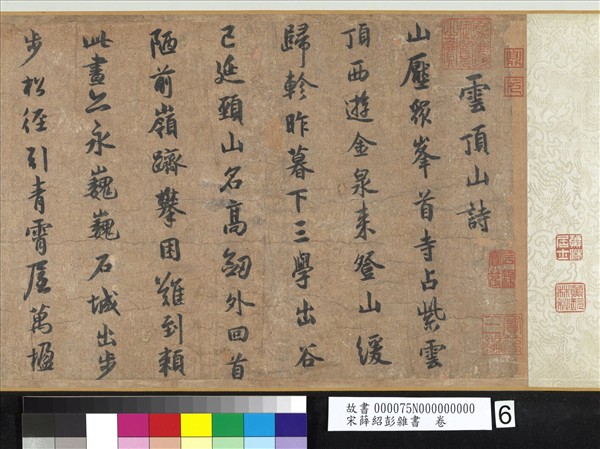 雲頂山詩
山壓眾峯首寺占紫雲
頂西遊金泉来登山緩
歸軫昨暮下三學出谷
已延頸山名高劔外回首
陋前嶺躋攀困難到賴
此晝亦永巍巍石城出步
步松徑引青霄屋萬楹
故書 000075N000000000
宋薛紹彭雜書 卷
6